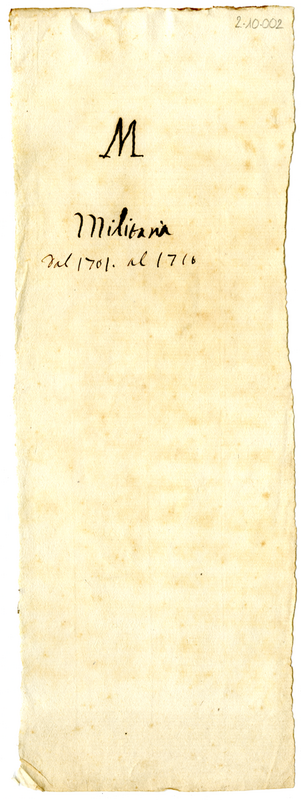 2.10.002
M
Militaria
Dal 1701. al 1716